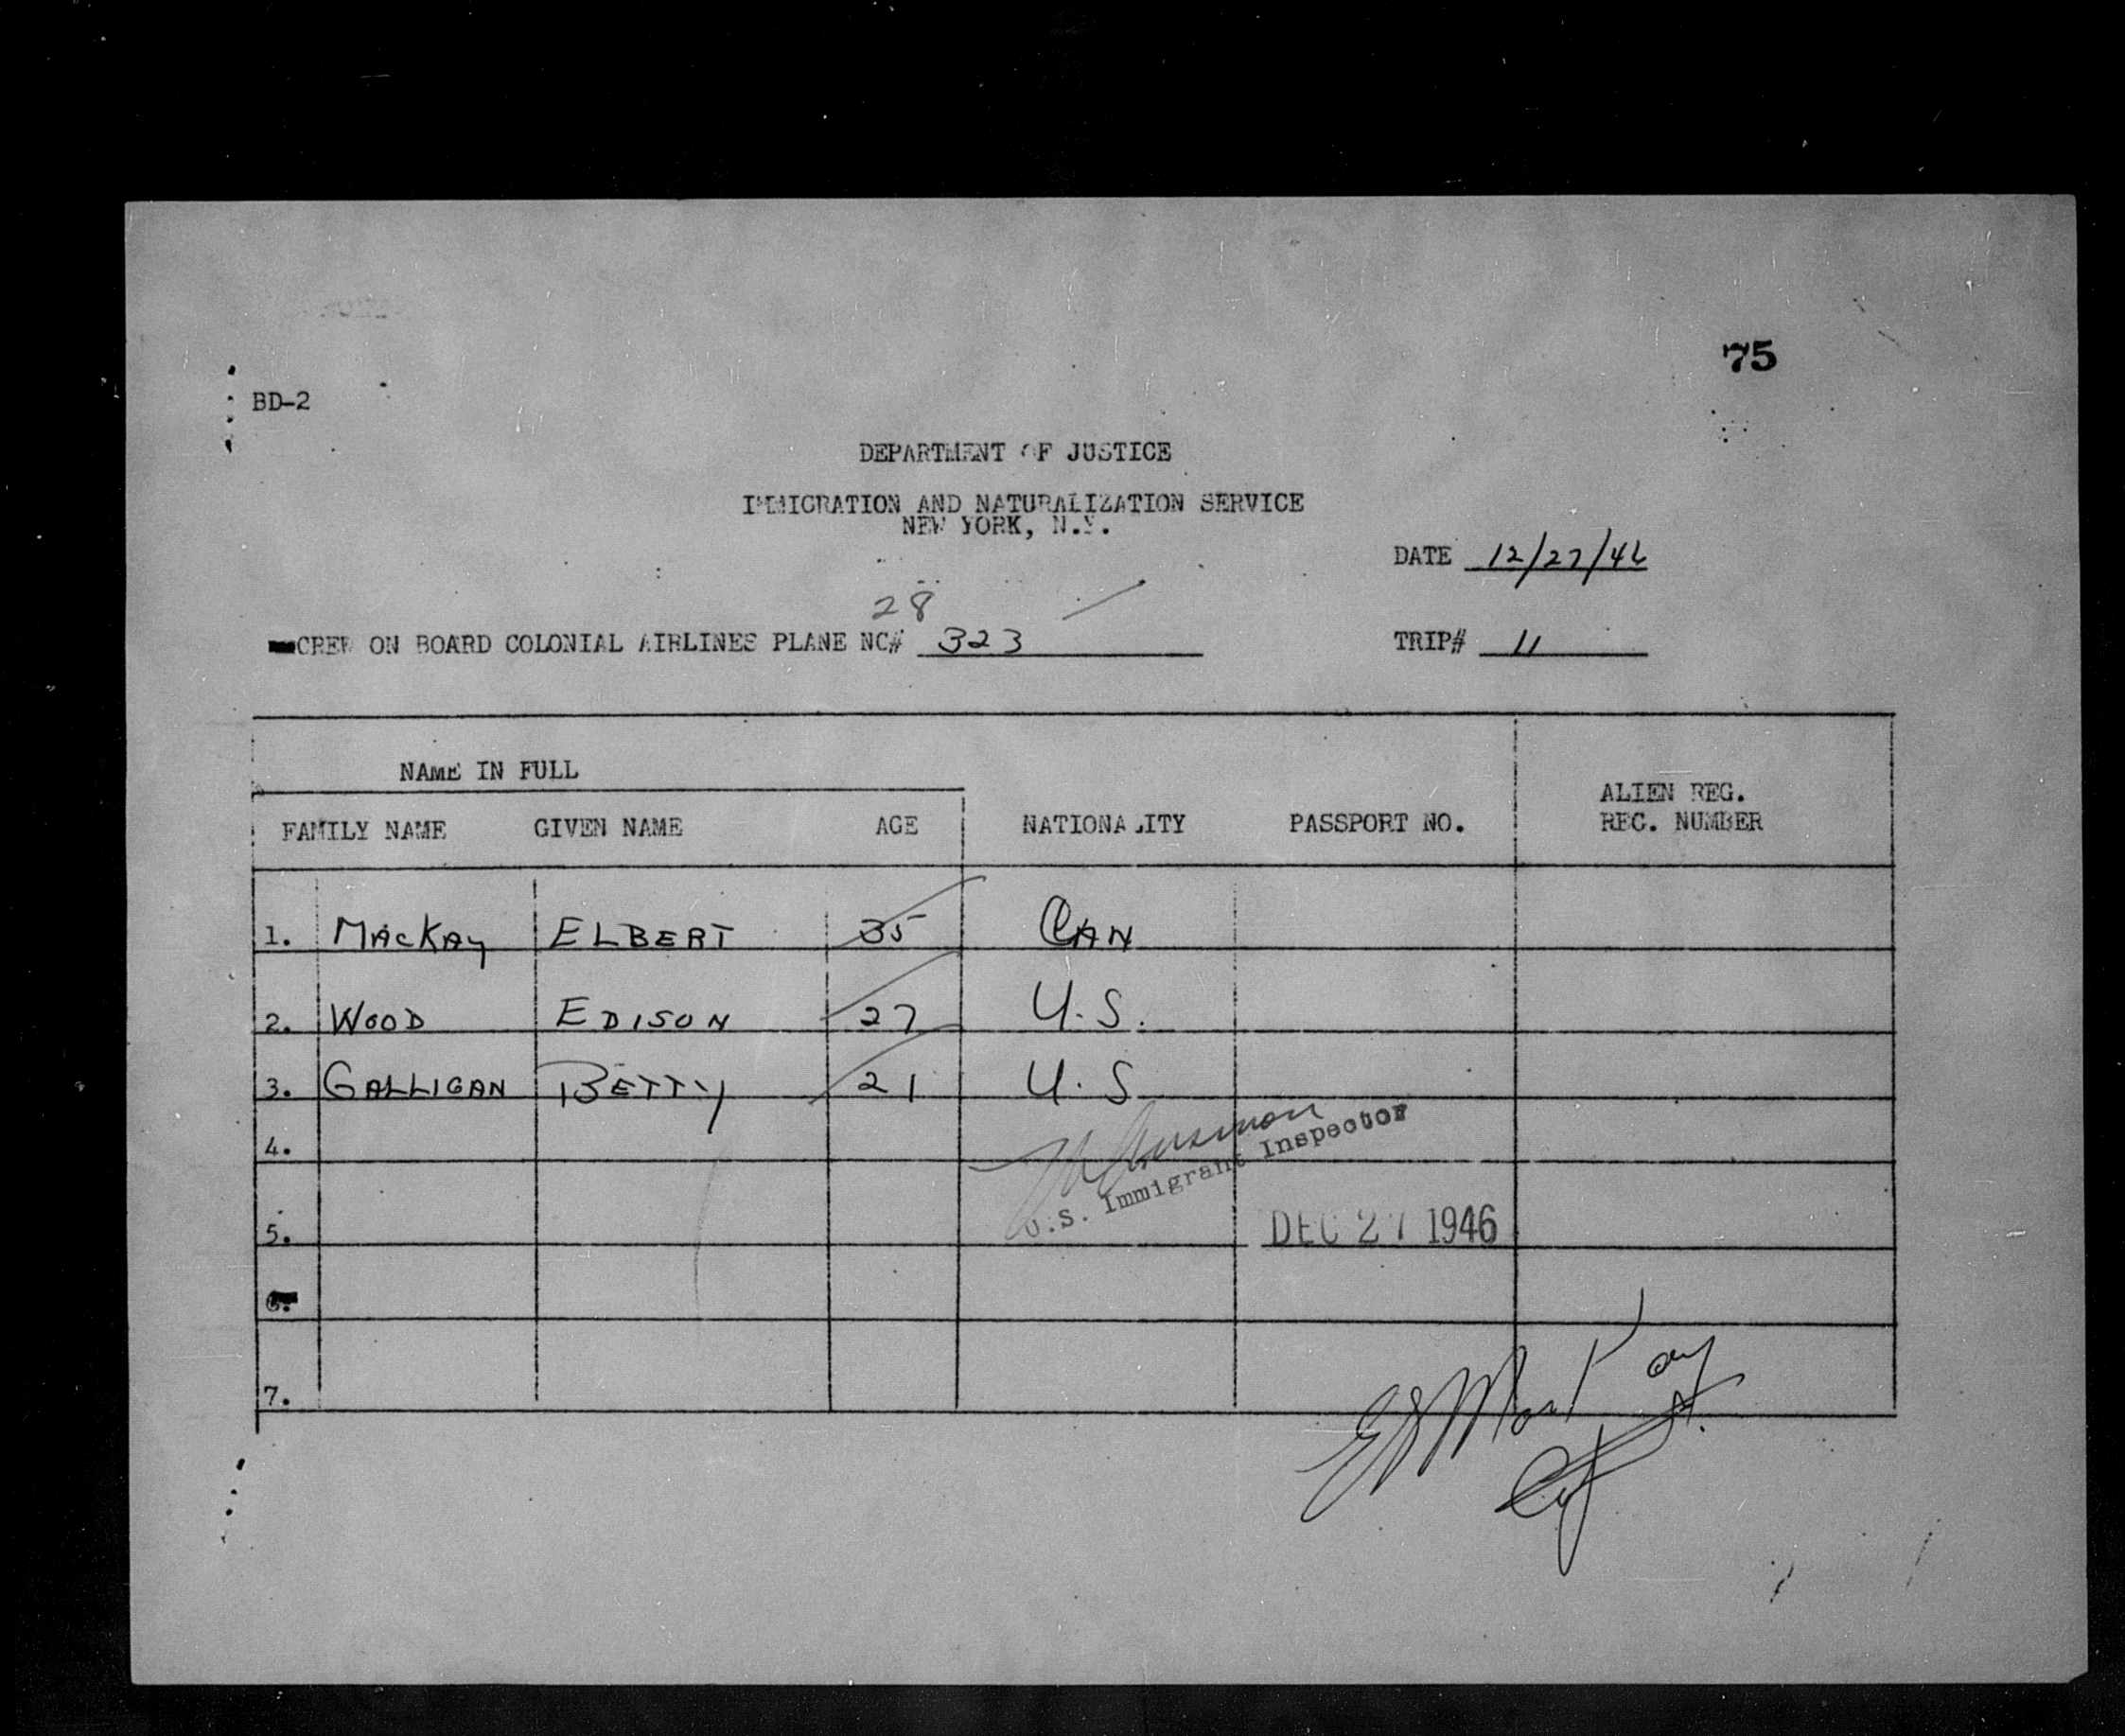 75
BD-2
DEPARTMENT OF JUSTICE
IMMIGRATION AND NATURALIZATION SERVICE
NEW YORK, N.Y.
DATE 12/27/46
28
CREW ON BOARD COLONIAL AIRLINES PLANE NC# 323
TRIP# 11
NAME IN FULL
FAMILY NAME GIVEN NAME AGE NATIONALITY PASSPORT NO. ALIEN REG.
REG. NUMBER
1. MACKAY ELBERT 35 CAN
2. WOOD EDISON 27 U.S.
3. GALLIGAN BETTY 21 U.S
4.
U.S. Immigrant Inspector
5. DEC 27 1946
6.
7.
MacKay